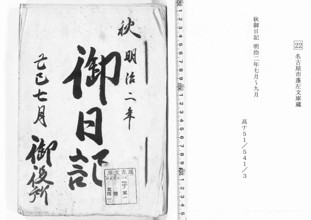 明治二年
秋
御日記
己巳七月
御役所
22 名古屋市蓬左文庫蔵
秋御日記 明治二年七月～九月
高ナ51／541／3